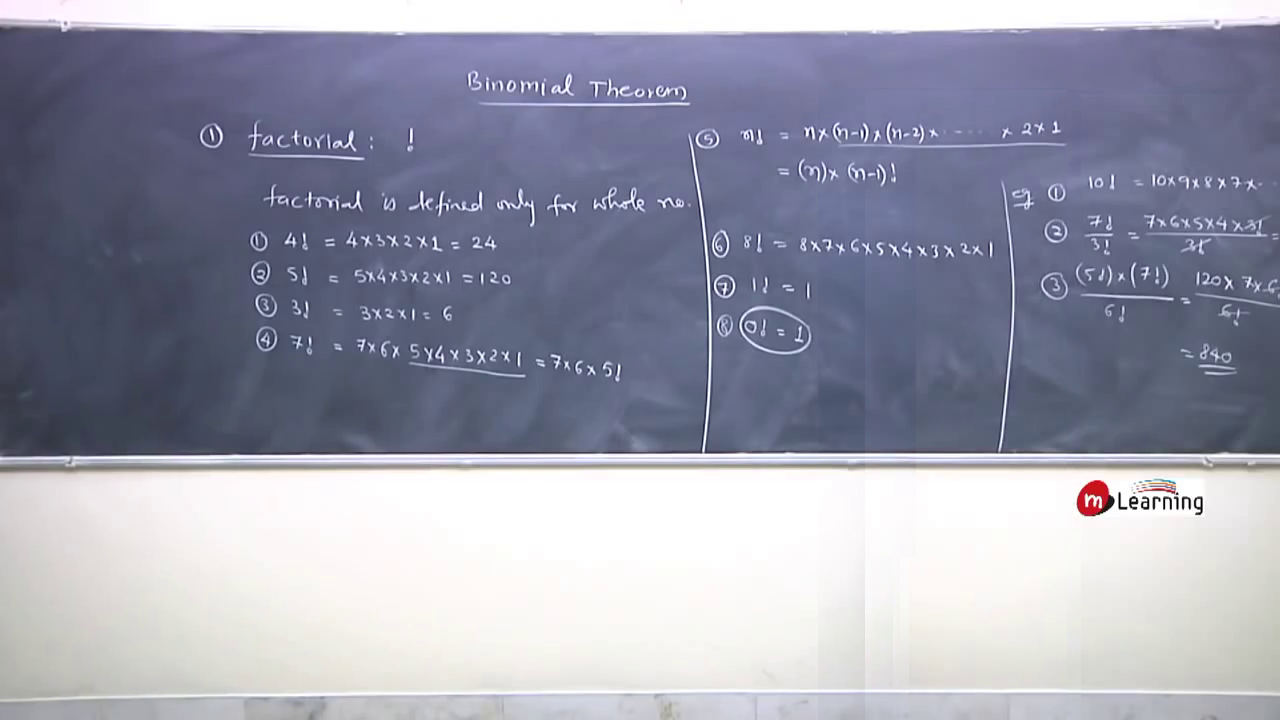 Binomial Theorem
① factorial : !
factorial is defined only for whole no.
① 4! = 4×3×2×1 = 24
② 5! = 5×4×3×2×1 = 120
③ 3! = 3×2×1 = 6
④ 7! = 7×6×5×4×3×2×1 = 7×6×5!
⑤ n! = n×(n-1)×(n-2)×······×2×1
= (n)×(n-1)!
⑥ 8! = 8×7×6×5×4×3×2×1
⑦ 1! = 1
⑧ 0! = 1
eg ① 10! = 10×9×8×7×··
② 7!/3! = 7×6×5×4×3!/3! =
③ (5!)×(7!)/6! = 120×7×6/6!
= 840
m Learning